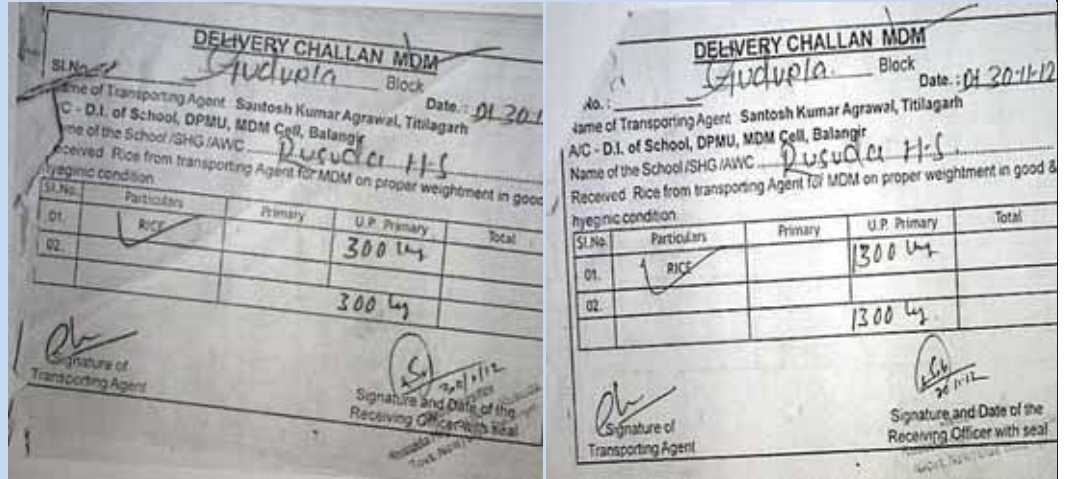 DELIVERY CHALLAN MDM
Sl.No.
Gudvela Block
Date. : Dt 30.1
Name of Transporting Agent Santosh Kumar Agrawal, Titilagarh
A/C - D.I. of School, DPMU, MDM Cell, Balangir
Name of the School /SHG /AWC Rusuda H-S
Received Rice from transporting Agent for MDM on proper weightment in good
hyeginic condition
Sl.No. Particulars Primary U.P. Primary Total
01. RICE 300 kg
02.
300 kg
Signature of
Transporting Agent
Signature and Date of the
Receiving Officer with seal
DELIVERY CHALLAN MDM
No. :
Gudvela Block
Date. : Dt 30-11-12
Name of Transporting Agent Santosh Kumar Agrawal, Titilagarh
A/C - D.I. of School, DPMU, MDM Cell, Balangir
Name of the School /SHG /AWC Rusuda H-S
Received Rice from transporting Agent for MDM on proper weightment in good &
hyeginic condition
Sl.No. Particulars Primary U.P. Primary Total
01. RICE 1300 kg
02.
1300 kg.
30-11-12
Signature of
Transporting Agent
Signature and Date of the
Receiving Officer with seal